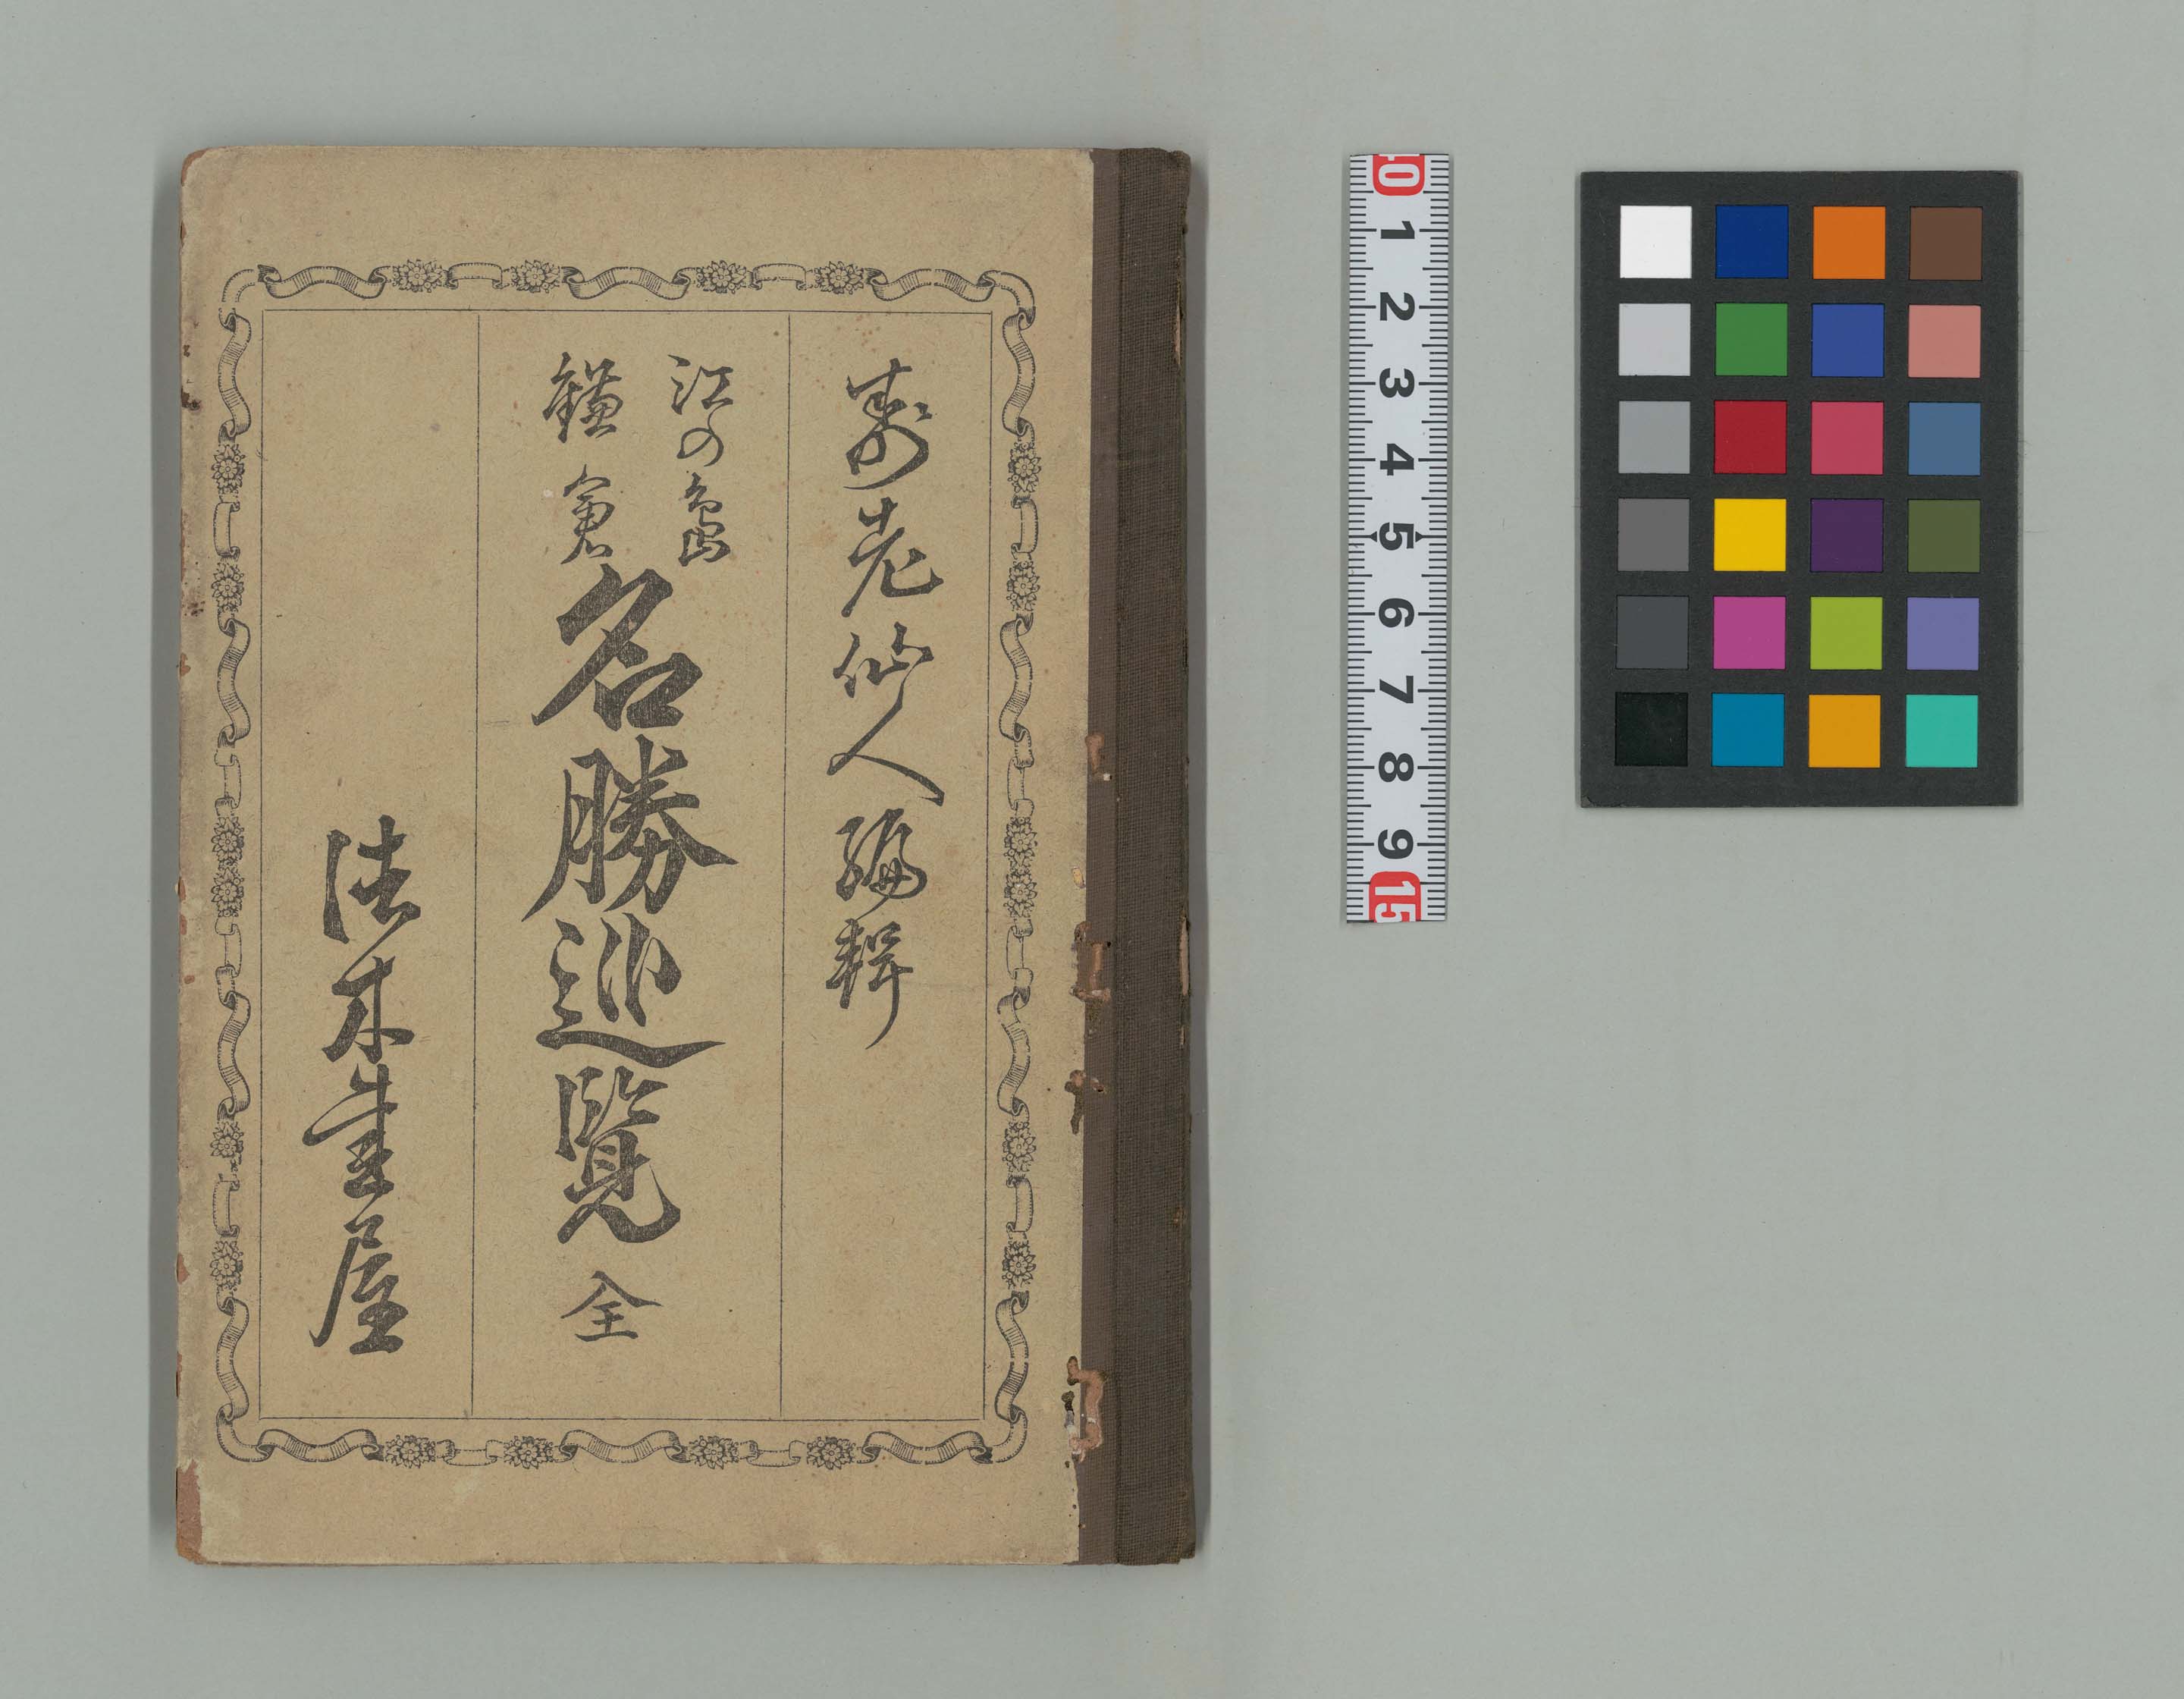 寿老仙人編輯
江の島
鎌倉
名勝巡覧 全
法木書屋
10 1 2 3 4 5 6 7 8 9 15